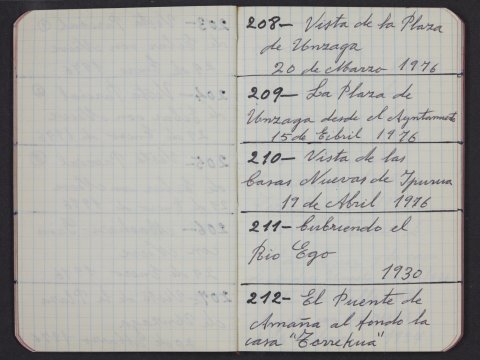 208- Vista de la Plaza
de Unzaga
20 de Marzo 1976
209- La Plaza de
Unzaga desde el Ayuntamiento
15 de Ecbril 1976
210- Vista de las
Casas Nuevas de Ipurua
17 de Abril 1976
211- Cubriendo el
Rio Ego
1930
212- El Puente de
Amaña al fondo la
casa "Torrekua"
203-
204-
205-
206-
207-